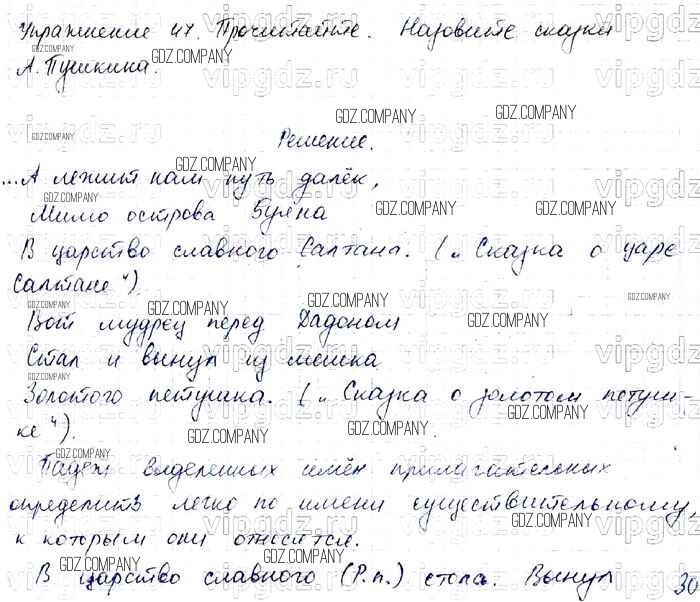 Упражнение 47. Прочитайте. Назовите сказки
А. Пушкина.
Решение.
...А лежит нам путь далёк,
Мимо острова Буяна
В царство славного Салтана. („Сказка о царе
Салтане“)
Вот мудрец перед Дадоном
Стал и вынул из мешка
Золотого петушка. („Сказка о золотом петуш-
ке“).
Падеж выделенных имён прилагательных
определить легко по имени существительному,
к которым они относятся.
В царство славного (Р.п.) стола. Вынул
30